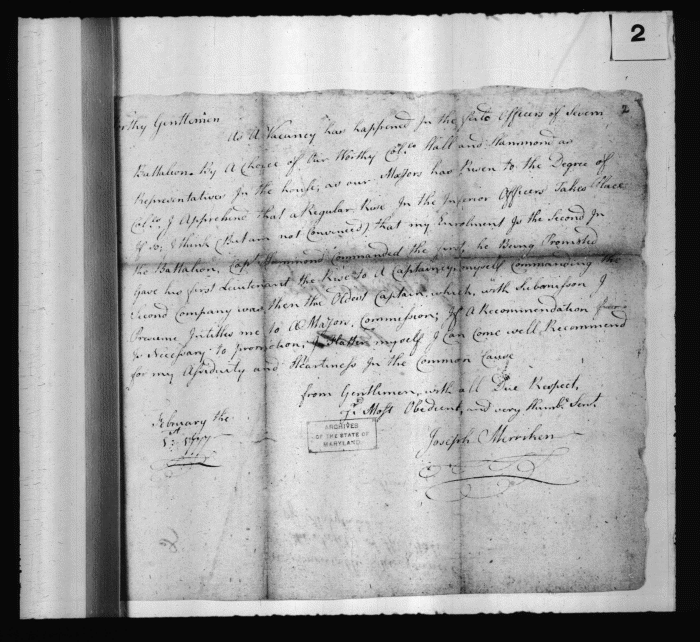 2
2
Worthy Gentlemen
As A Vacancy has happened In the Officers of Severn
Battalion. By A Choice of Our Worthy Colˢ. Hall and Hammond as
Representatives In the house, as our Majors has Risen to the Degree of
Colˢ. I Apprehend that a Regular Rise In the Inferior Officers Takes Place
If so, I think (But am not Convinced) that my Enrolment Is the Second In
the Battalion, Capt. Hammond Commanded the first, he Being Promoted
Gave his first Lieutenant the Rise to A Captaincy, myself Commanding the
Second Company was then the Oldest Captain, which, with Submission I
Presume Intitles me to A Majors Commission; If A Recommendation
Is Necessary to promotion, I flatter myself I Can Come well Recommend
for my Asiduity and Heartiness In the Common Cause
from Gentlemen, with all Due Respect,
Yr. Most Obedient, and very Humbᵉ. Servt.
February the
1st 1777
Joseph Merriken
ARCHIVES
OF THE STATE OF
MARYLAND